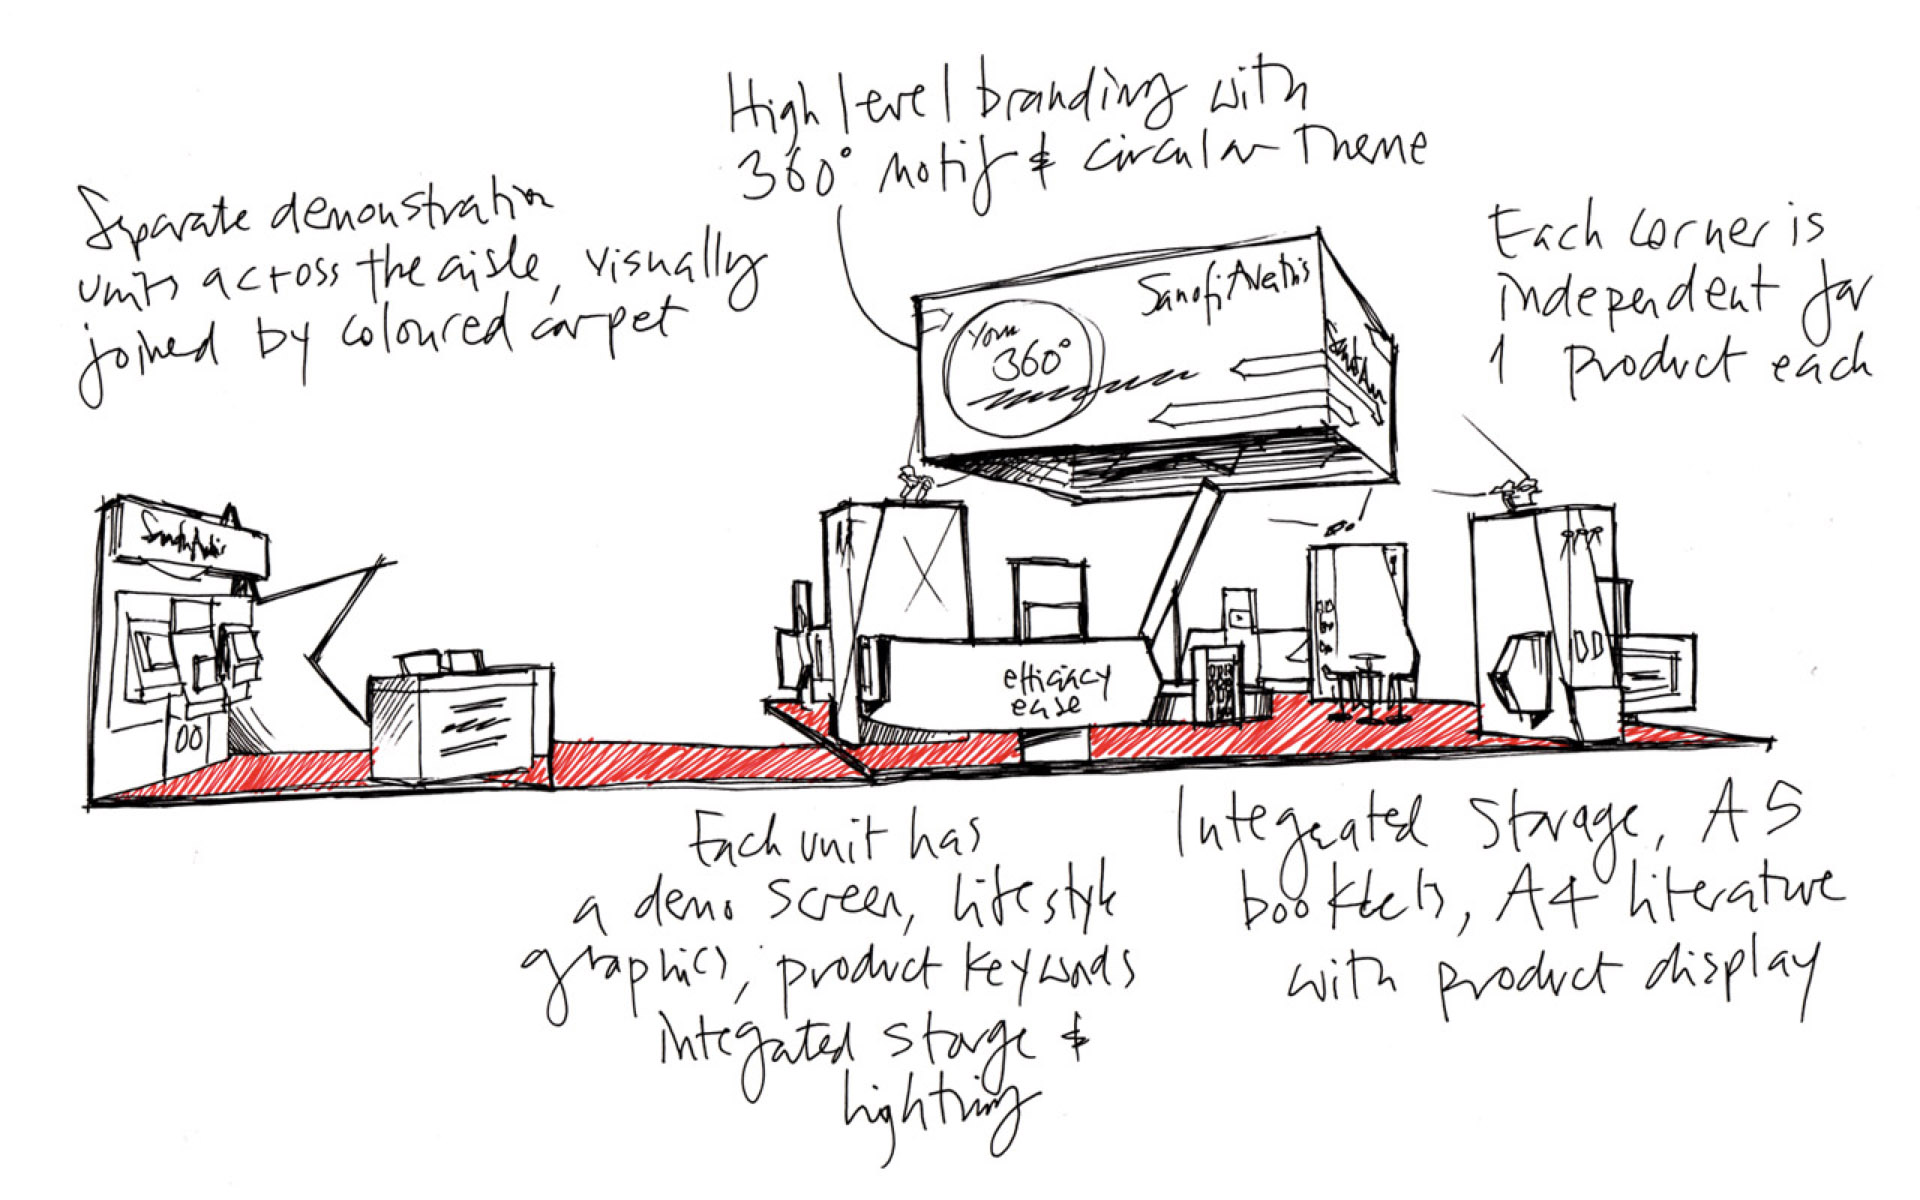 High level branding with
360° motif & circular theme
Separate demonstration
units across the aisle, visually
joined by coloured carpet
Each corner is
independent for
1 product each
Sanofi Aventis
Your
360°
efficiacy
ease
Each unit has
a demo screen, lifestyle
graphics, product keywords
integrated storge &
lighting
Integrated storage, A5
booklets, A4 literature
with product display